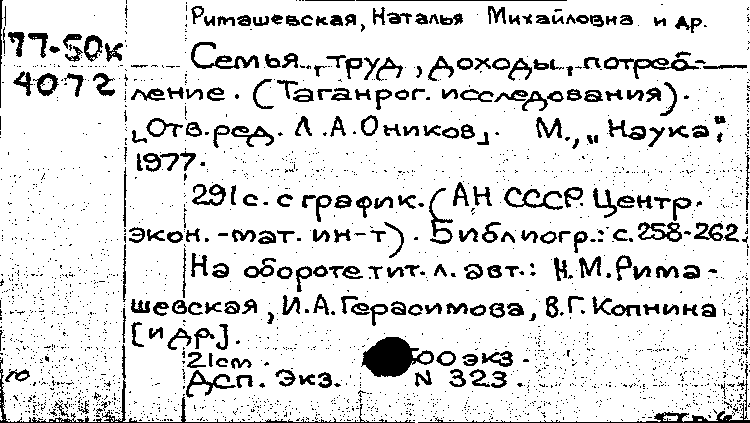 Римашевская, Наталья Михайловна и др.
77-50к
4072
Семья, труд, доходы, потреб-
ление. (Таганрог. исследования).
[Отв. ред. Л.А.Оников]. М., "Наука",
1977.
291 с. с график. (АН СССР. Центр.
экон.-мат. ин-т). Библиогр.: с.258-262.
На обороте тит. л. авт.: Н.М.Рима-
шевская, И.А.Герасимова, В.Г.Копнина
[и др.].
21 cm. 500 экз.
Дсп. Экз. N 323.
10